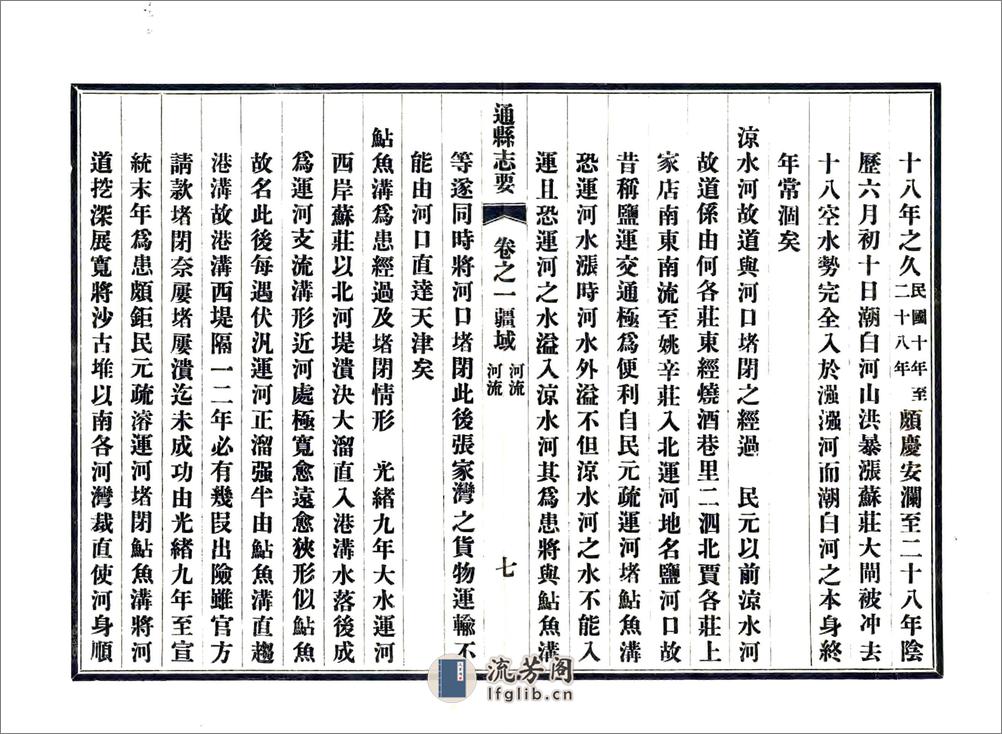 十八年之久民國十年至二十八年頗慶安瀾至二十八年陰
歷六月初十日潮白河山洪暴漲蘇莊大閘被冲去
十八空水勢完全入於漒漒河而潮白河之本身終
年常涸矣
涼水河故道與河口堵閉之經過　民元以前涼水河
故道係由何各莊東經燒酒巷里二泗北賈各莊上
家店南東南流至姚辛莊入北運河地名鹽河口故
昔稱鹽運交通極爲便利自民元疏運河堵鮎魚溝
恐運河水漲時河水外溢不但涼水河之水不能入
運且恐運河之水溢入涼水河其爲患將與鮎魚溝
通縣志要　卷之一疆域　河流　河流　七
等遂同時將河口堵閉此後張家灣之貨物運輸不
能由河口直達天津矣
鮎魚溝爲患經過及堵閉情形　光緒九年大水運河
西岸蘇莊以北河堤潰決大溜直入港溝水落後成
爲運河支流溝形近河處極寬愈遠愈狹形似鮎魚
故名此後每遇伏汛運河正溜强半由鮎魚溝直趨
港溝故港溝西堤隔一二年必有幾段出險雖官方
請款堵閉奈屢堵屢潰迄未成功由光緒九年至宣
統末年爲患頗鉅民元疏溶運河堵閉鮎魚溝將河
道挖深展寬將沙古堆以南各河灣裁直使河身順
流芳阁
lfglib.cn